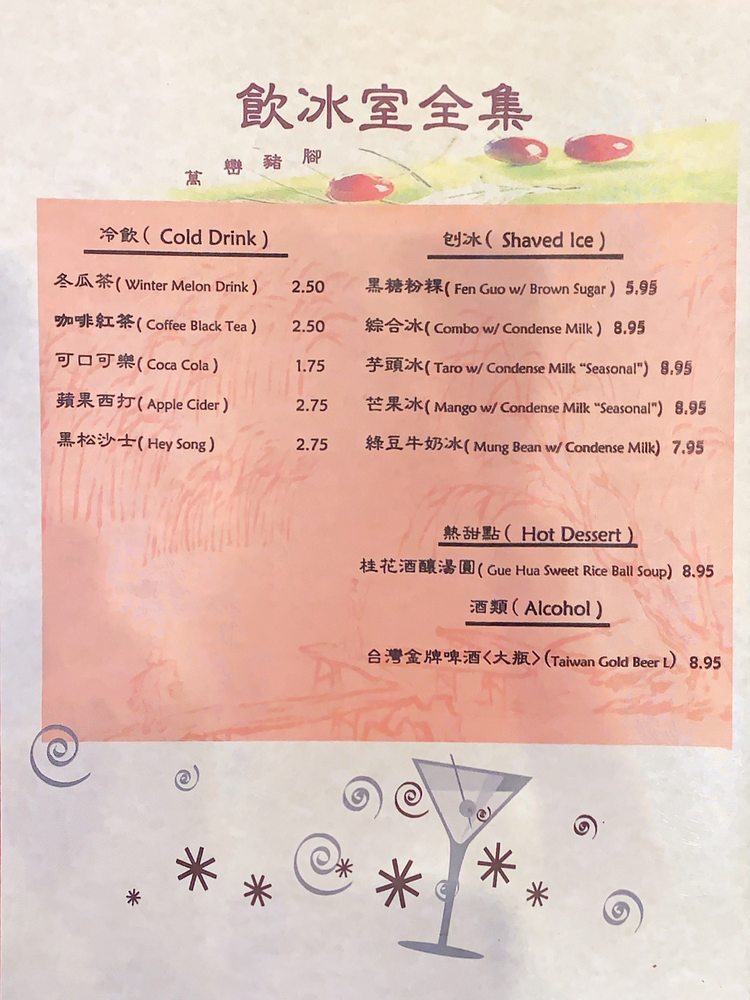 飲冰室全集
萬巒豬腳
冷飲( Cold Drink )
冬瓜茶( Winter Melon Drink ) 2.50
咖啡紅茶( Coffee Black Tea ) 2.50
可口可樂( Coca Cola ) 1.75
蘋果西打( Apple Cider ) 2.75
黑松沙士( Hey Song ) 2.75
刨冰( Shaved Ice )
黑糖粉粿( Fen Guo w/ Brown Sugar ) 5.95
綜合冰( Combo w/ Condense Milk ) 8.95
芋頭冰( Taro w/ Condense Milk "Seasonal") 8.95
芒果冰( Mango w/ Condense Milk "Seasonal") 8.95
綠豆牛奶冰( Mung Bean w/ Condense Milk) 7.95
熱甜點( Hot Dessert )
桂花酒釀湯圓( Gue Hua Sweet Rice Ball Soup) 8.95
酒類( Alcohol )
台灣金牌啤酒<大瓶>(Taiwan Gold Beer L) 8.95